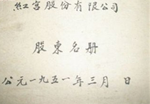 红宫股份有限公司
股东名册
公元一九五一年三月 日